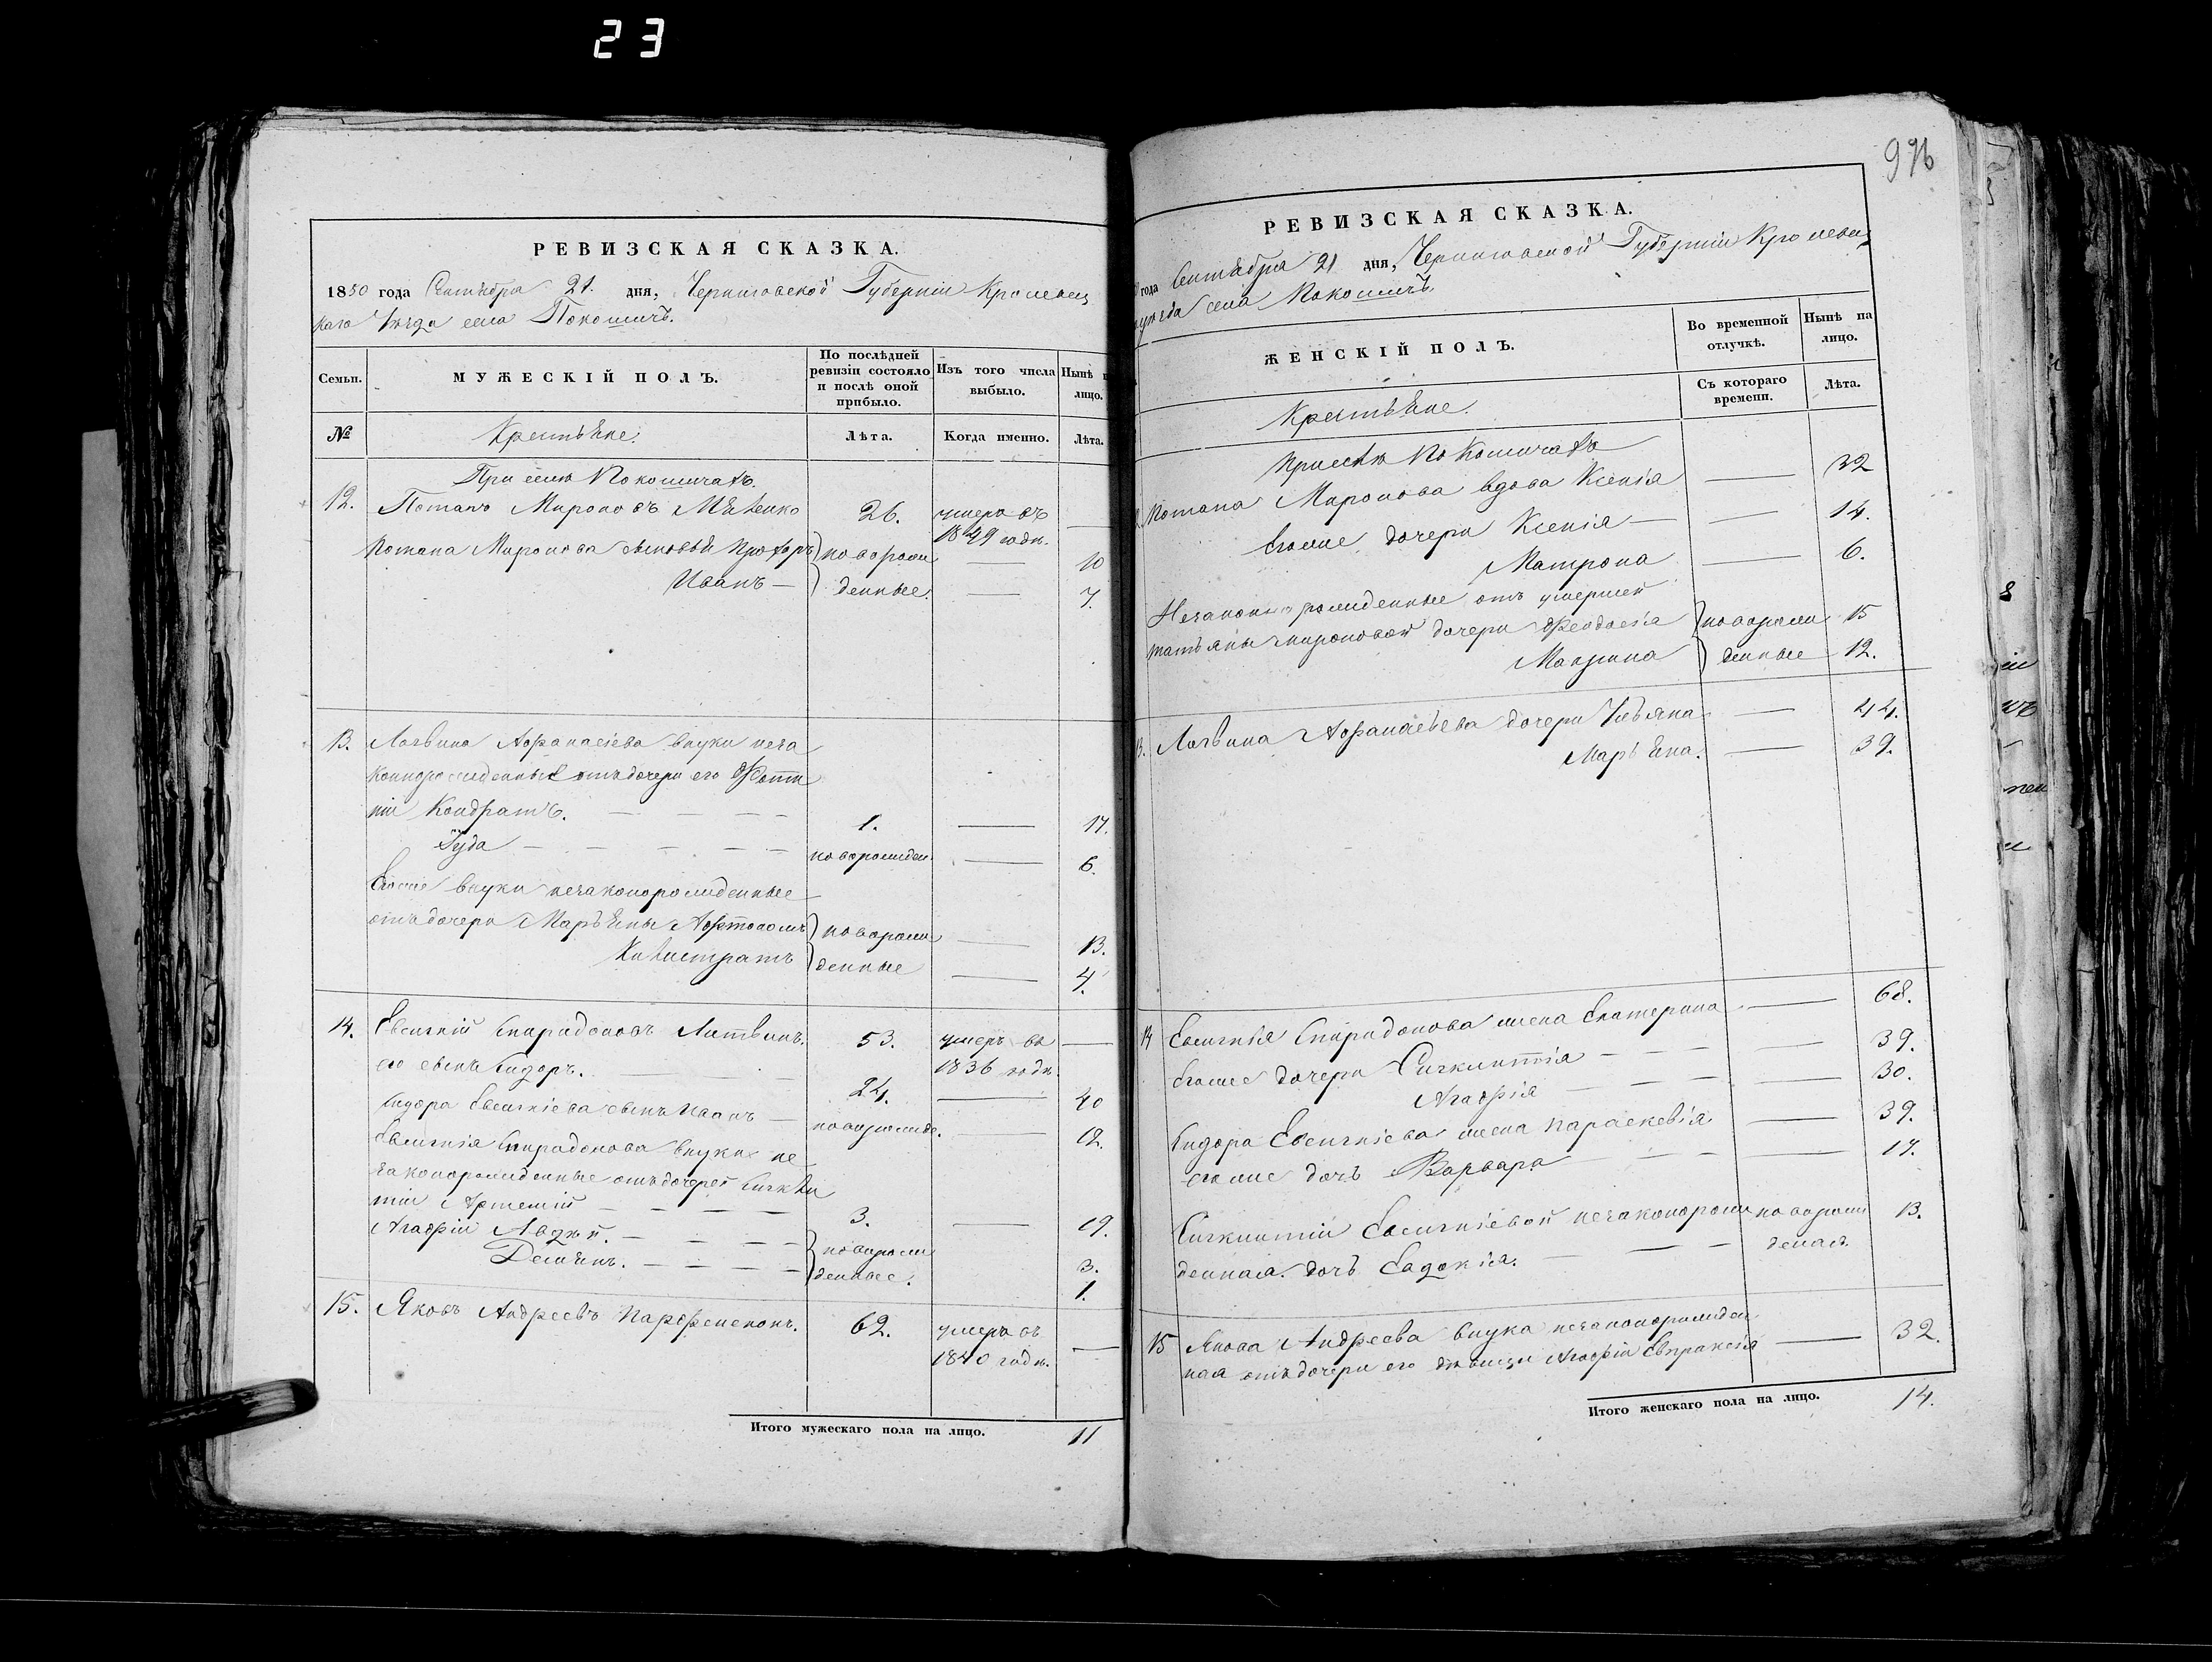 23
976
РЕВИЗСКАЯ СКАЗКА.
1850 года Сентября 21. дня, Черниговской Губерніи Кролевец
каго Уѣзда села Покошичъ.
Семьи.
МУЖЕСКІЙ ПОЛЪ.
По послѣдней ревизіи состояло и послѣ оной прибыло.
Изъ того числа выбыло.
Нынѣ лицо.
№
Крестьяне.
Лѣта.
Когда именно.
Лѣта.
При селѣ Покошичахъ.
12. Потапъ Мироновъ 26. умеръ въ —
1849 годѣ.
Потапа Миронова сыновья Прохоръ новорож — 10
Иванъ — денные. — 7.
13. Логвина Афанасіева внуки неза
конорожденныя отъ дочери его Фоти
ніи Кондратъ. — — — — 1. — 17.
Іуда — — — — — новорожден. — 6.
Егоже внуки незаконорожденные
отъ дочери Марьяны новорож — 13.
Калистратъ денные — 4.
14. Евсигній Спиридоновъ Литвинъ. 53. умеръ въ —
1836 годѣ.
его сынъ Сидоръ. — — 24. — 40
Сидора Евсигніева сынъ Иванъ — новорожде. — 12.
Евсигнія Спиридонова внуки не
законорожденные отъ дочерей
Артемій — — — — 3. — 19.
Агафіи Авдѣй. — — — — новорож 3.
Демьянъ. — — — — денные. 1.
15. Яковъ Андреевъ Парфененокъ. 62. умеръ въ —
1840 годѣ.
Итого мужескаго пола на лицо. 11
РЕВИЗСКАЯ СКАЗКА.
года Сентября 21 дня, Черниговской Губерніи Кролевец
уѣзда села Покошичъ.
ЖЕНСКІЙ ПОЛЪ.
Во временной отлучкѣ.
Нынѣ на лицо.
Съ котораго времени.
Лѣта.
Крестьяне.
При селѣ Покошичахъ
Потапа Миронова вдова Ксенія — 32
Егоже дочери Ксенія — — 14.
Матрона — 6.
Незаконно рожденные отъ умершей
Татьяны Мироновой дочери Феодосія новорож 15
Макрина денные 12.
13. Логвина Афанасьева дочери Ульяна — 44.
Марьяна. — 39.
14 Евсигнія Спиридонова жена Екатерина — 68.
Егоже дочери — — — — 39.
Агафія — — — — 30.
Сидора Евсигніева жена Параскевія — 39.
егоже дочь Варвара — — — — 17.
Евсигніевой незаконорож новорож 13.
денная дочь Евдокія. — — — деная.
15 Якова Андреева внука незаконорожден
ная отъ дочери его дѣвицы Агафіи Евпраксія — 32.
Итого женскаго пола на лицо. 14.